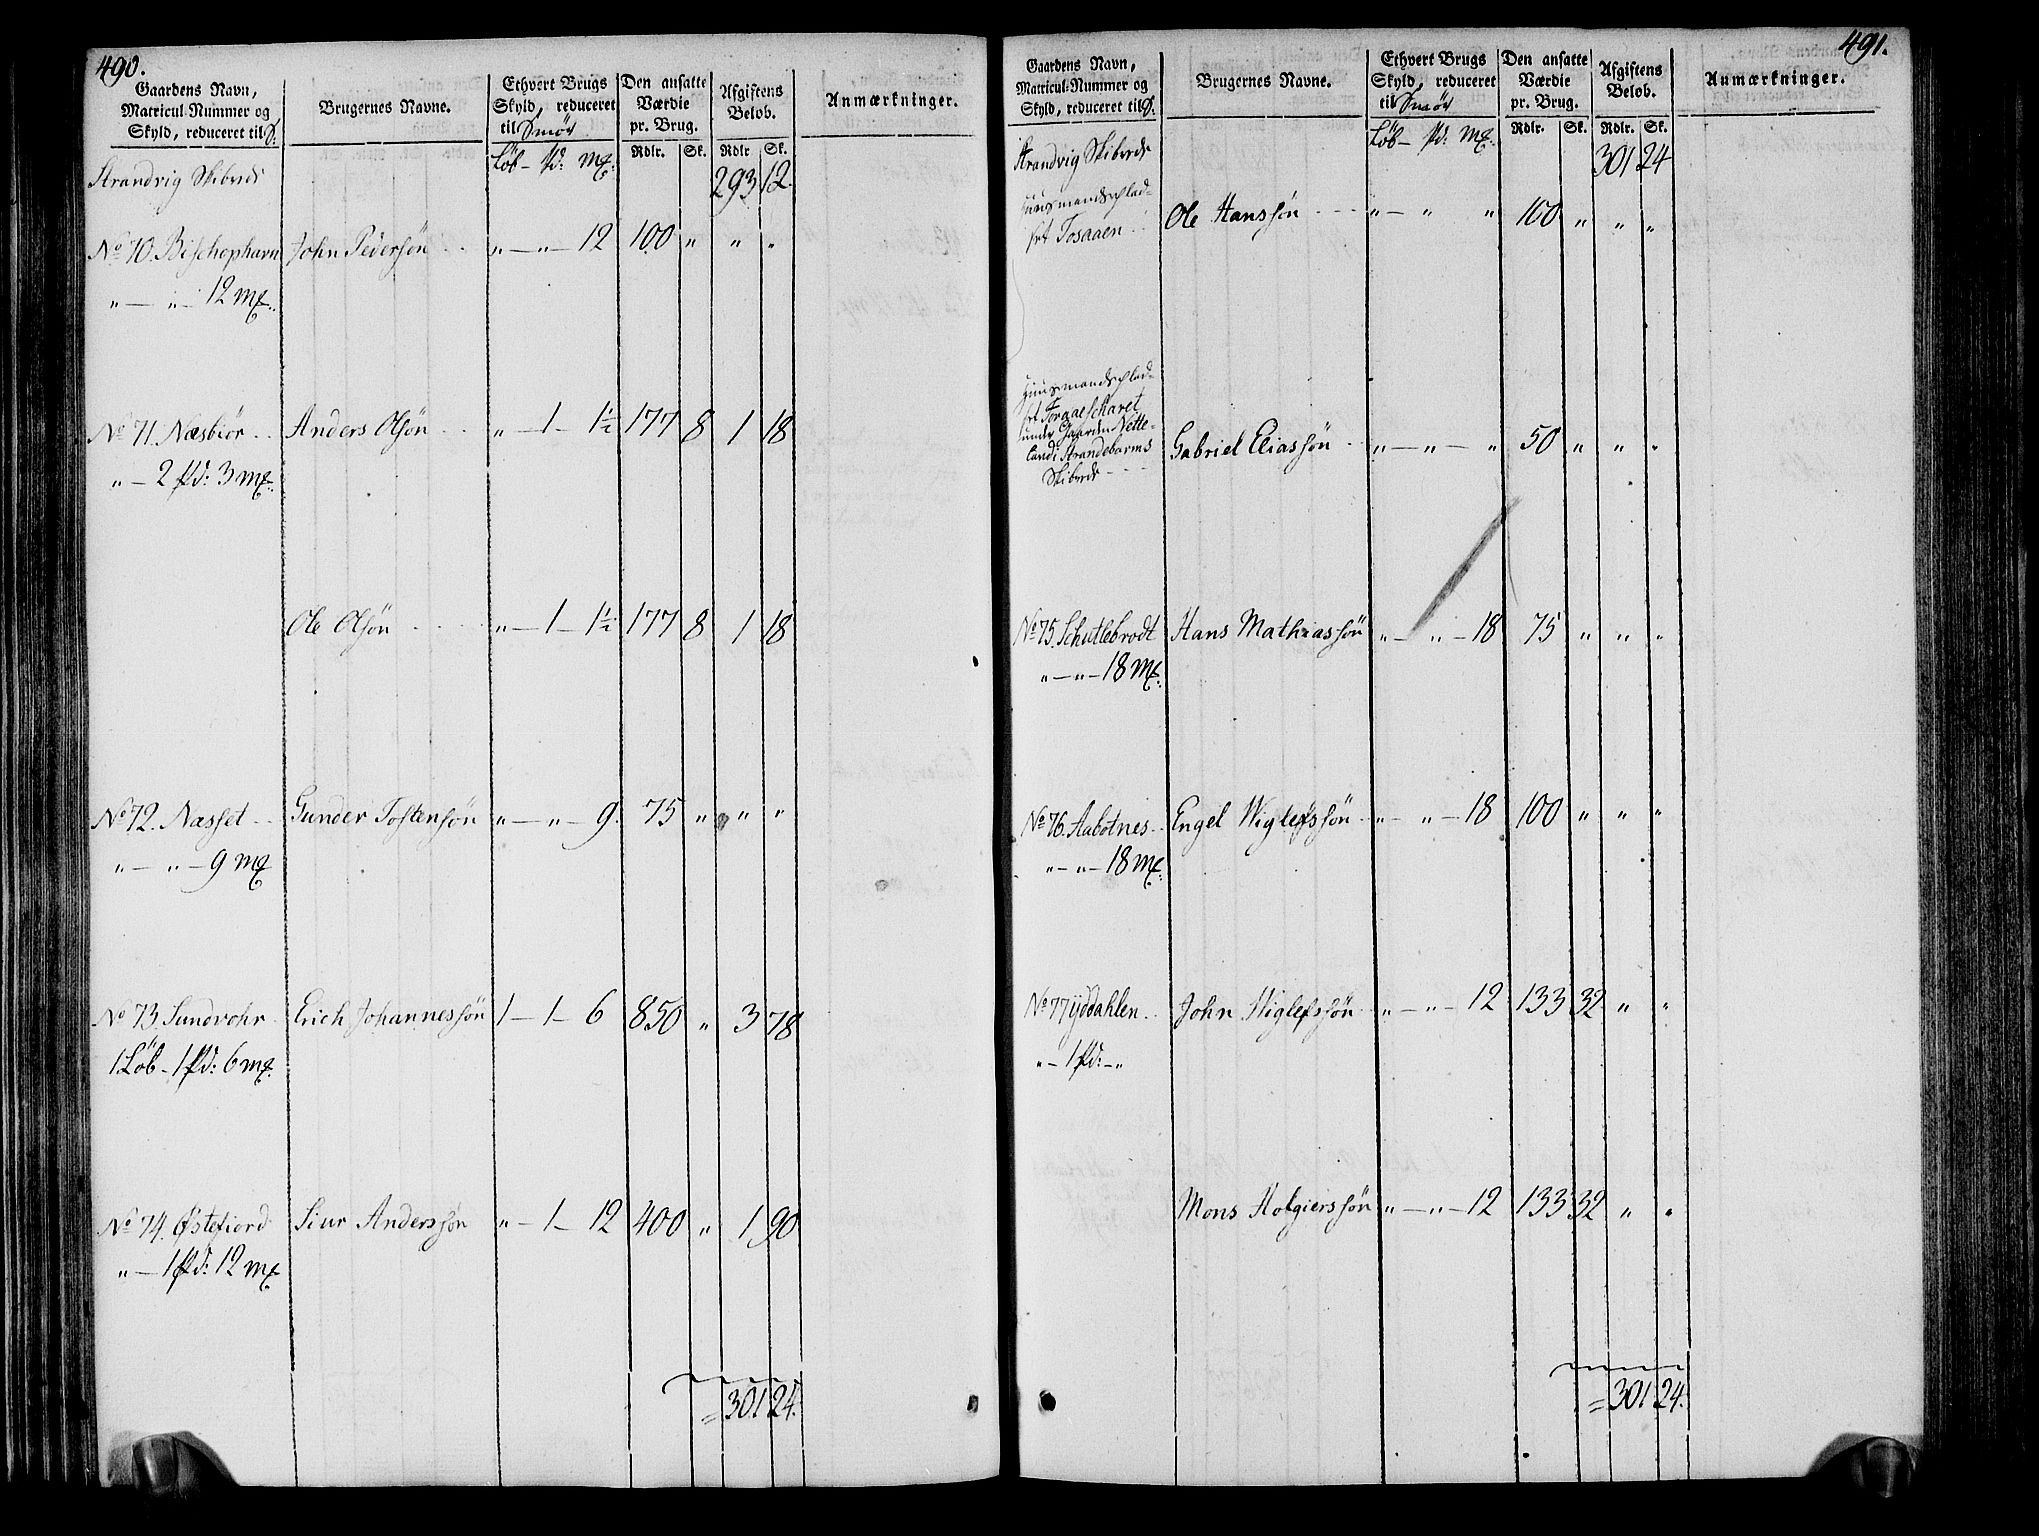 490.
Gaardens Navn, Matricul-Nummer og Skyld, reduceret til S: | Brugernes Navne. | Ethvert Brugs Skyld, reduceret til Smör | Den ansatte Værdie pr. Brug. | Afgiftens Beløb. | Anmærkninger.
Löb – Pd: mk. | Rdlr. | Sk. | Rdlr | Sk.
Strandvig Skibrede 293 12.
No 70. Bischophavn John Pedersön „ — „ — 12 100 „ „ „
„ — „ — 12 mk.
No 71. Næsbiör Anders Olsön „ — 1 — 1½ 177 8 1 18
„ — 2 Pd: 3 mk.
Ole Olsön „ — 1 — 1½ 177 8 1 18
No 72. Næsset Gunder Tostensön „ — „ — 9. 75 „ „ „
„ — „ — 9 mk
No 73. Sundvohr Erich Johannessön 1 — 1 — 6 850 „ 3 78
1 Löb – 1 Pd: 6 mk.
No 74. Østefiord Siur Anderssön „ — 1 — 12 400 „ 1 90
„ — 1 Pd: 12 mk.
= 301 24.
491.
Gaardens Navn, Matricul-Nummer og Skyld, reduceret til S: | Brugernes Navne. | Ethvert Brugs Skyld, reduceret til Smör | Den ansatte Værdie pr. Brug. | Afgiftens Beløb. | Anmærkninger.
Löb – Pd: mk. | Rdlr. | Sk. | Rdlr. | Sk.
Strandvig Skibrede 301 24
Huusmandsplad-
set Tosaaen Ole Hanssön „ — „ „ 100 „ „ „
Huusmandsplad-
set
under Gaarden Nette-
land i Strandebarms
Skibrede Gabriel Eliassön „ — „ — „ 50 „ „ „
No 75. Schutlebrodt Hans Mathiassön „ — „ — 18 75 „ „ „
„ — „ — 18 mk.
No 76. Aabotnes Engel Wiglefssön „ — „ — 18 100 „ „ „
„ — „ — 18 mk.
No 77 Yddahlen John Wiglefssön „ — „ — 12 133 32 „ „
„ — 1 Pd: — „
Mons Holgierssön „ — „ — 12 133 32 „ „
= 301 24.